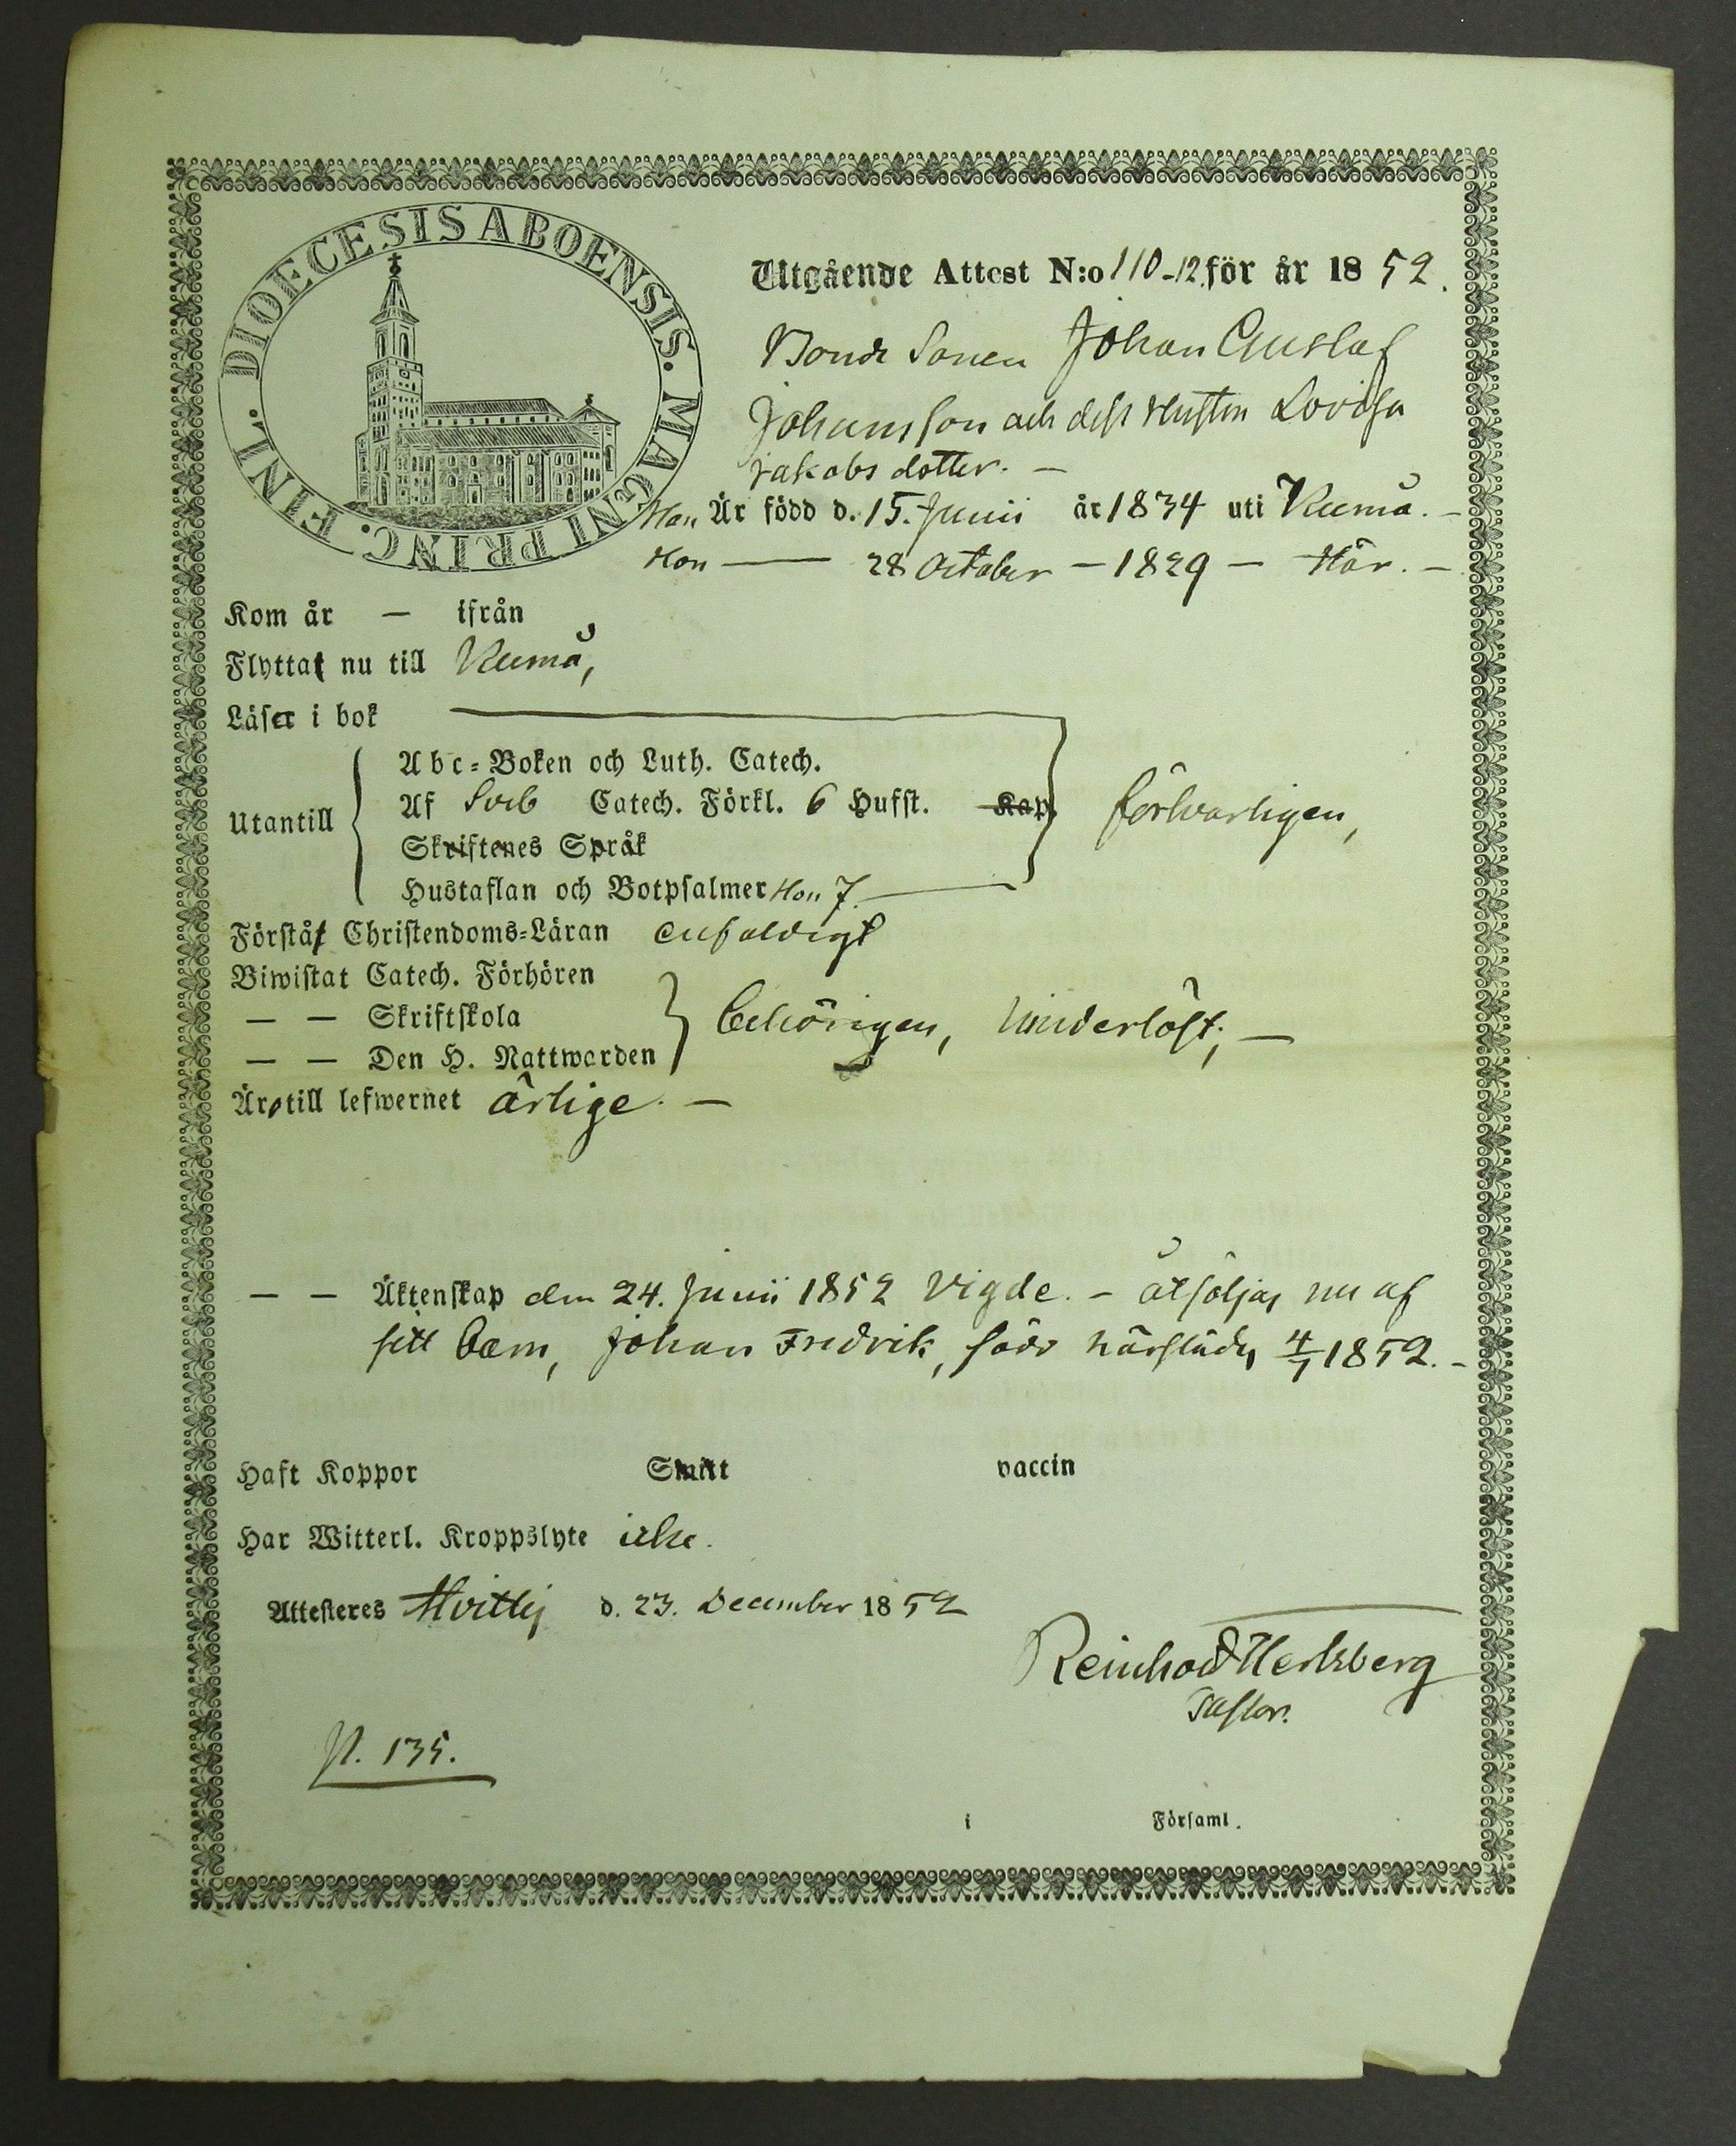 DIOECESIS ABOENSIS. MAGNI PRINC. FINL.
Utgående Attest N:o 110-12 för år 1852.
Bonde Sonen Johan Gustaf
Johansson och dess Hustru Lovisa
Jakobs dotter. —
Han Är född d. 15. Junii år 1834 uti Kumo. —
Hon — 28 October — 1829 — Här. —
Kom år — ifrån
Flyttat nu till Kumo,
Läser i bok
Utantill
Abc-Boken och Luth. Catech.
Af Sveb Catech. Förkl. 6 Hufst. Kap.
försvarligen,
Skriftenes Språk
Hustaflan och Botpsalmer Hon 7.
Förstå Christendoms-Läran enfaldigt
Biwistat Catech. Förhören
— — Skriftskola
behörigen, hinderlöst; —
— — Den H. Nattwarden
Äro till lefwernet ärlige. —
— — Äktenskap den 24. Junii 1852 Vigde. — åtföljas nu af
sitt barn, Johan Fredrik, född härstädes 4/7 1852. —
Haft Koppor Smitt vaccin
Har Witterl. Kroppslyte icke.
Attesteres Hvittis d. 23. December 1852
Reinhold Hertzberg
Pastor.
N. 135.
i Församl.